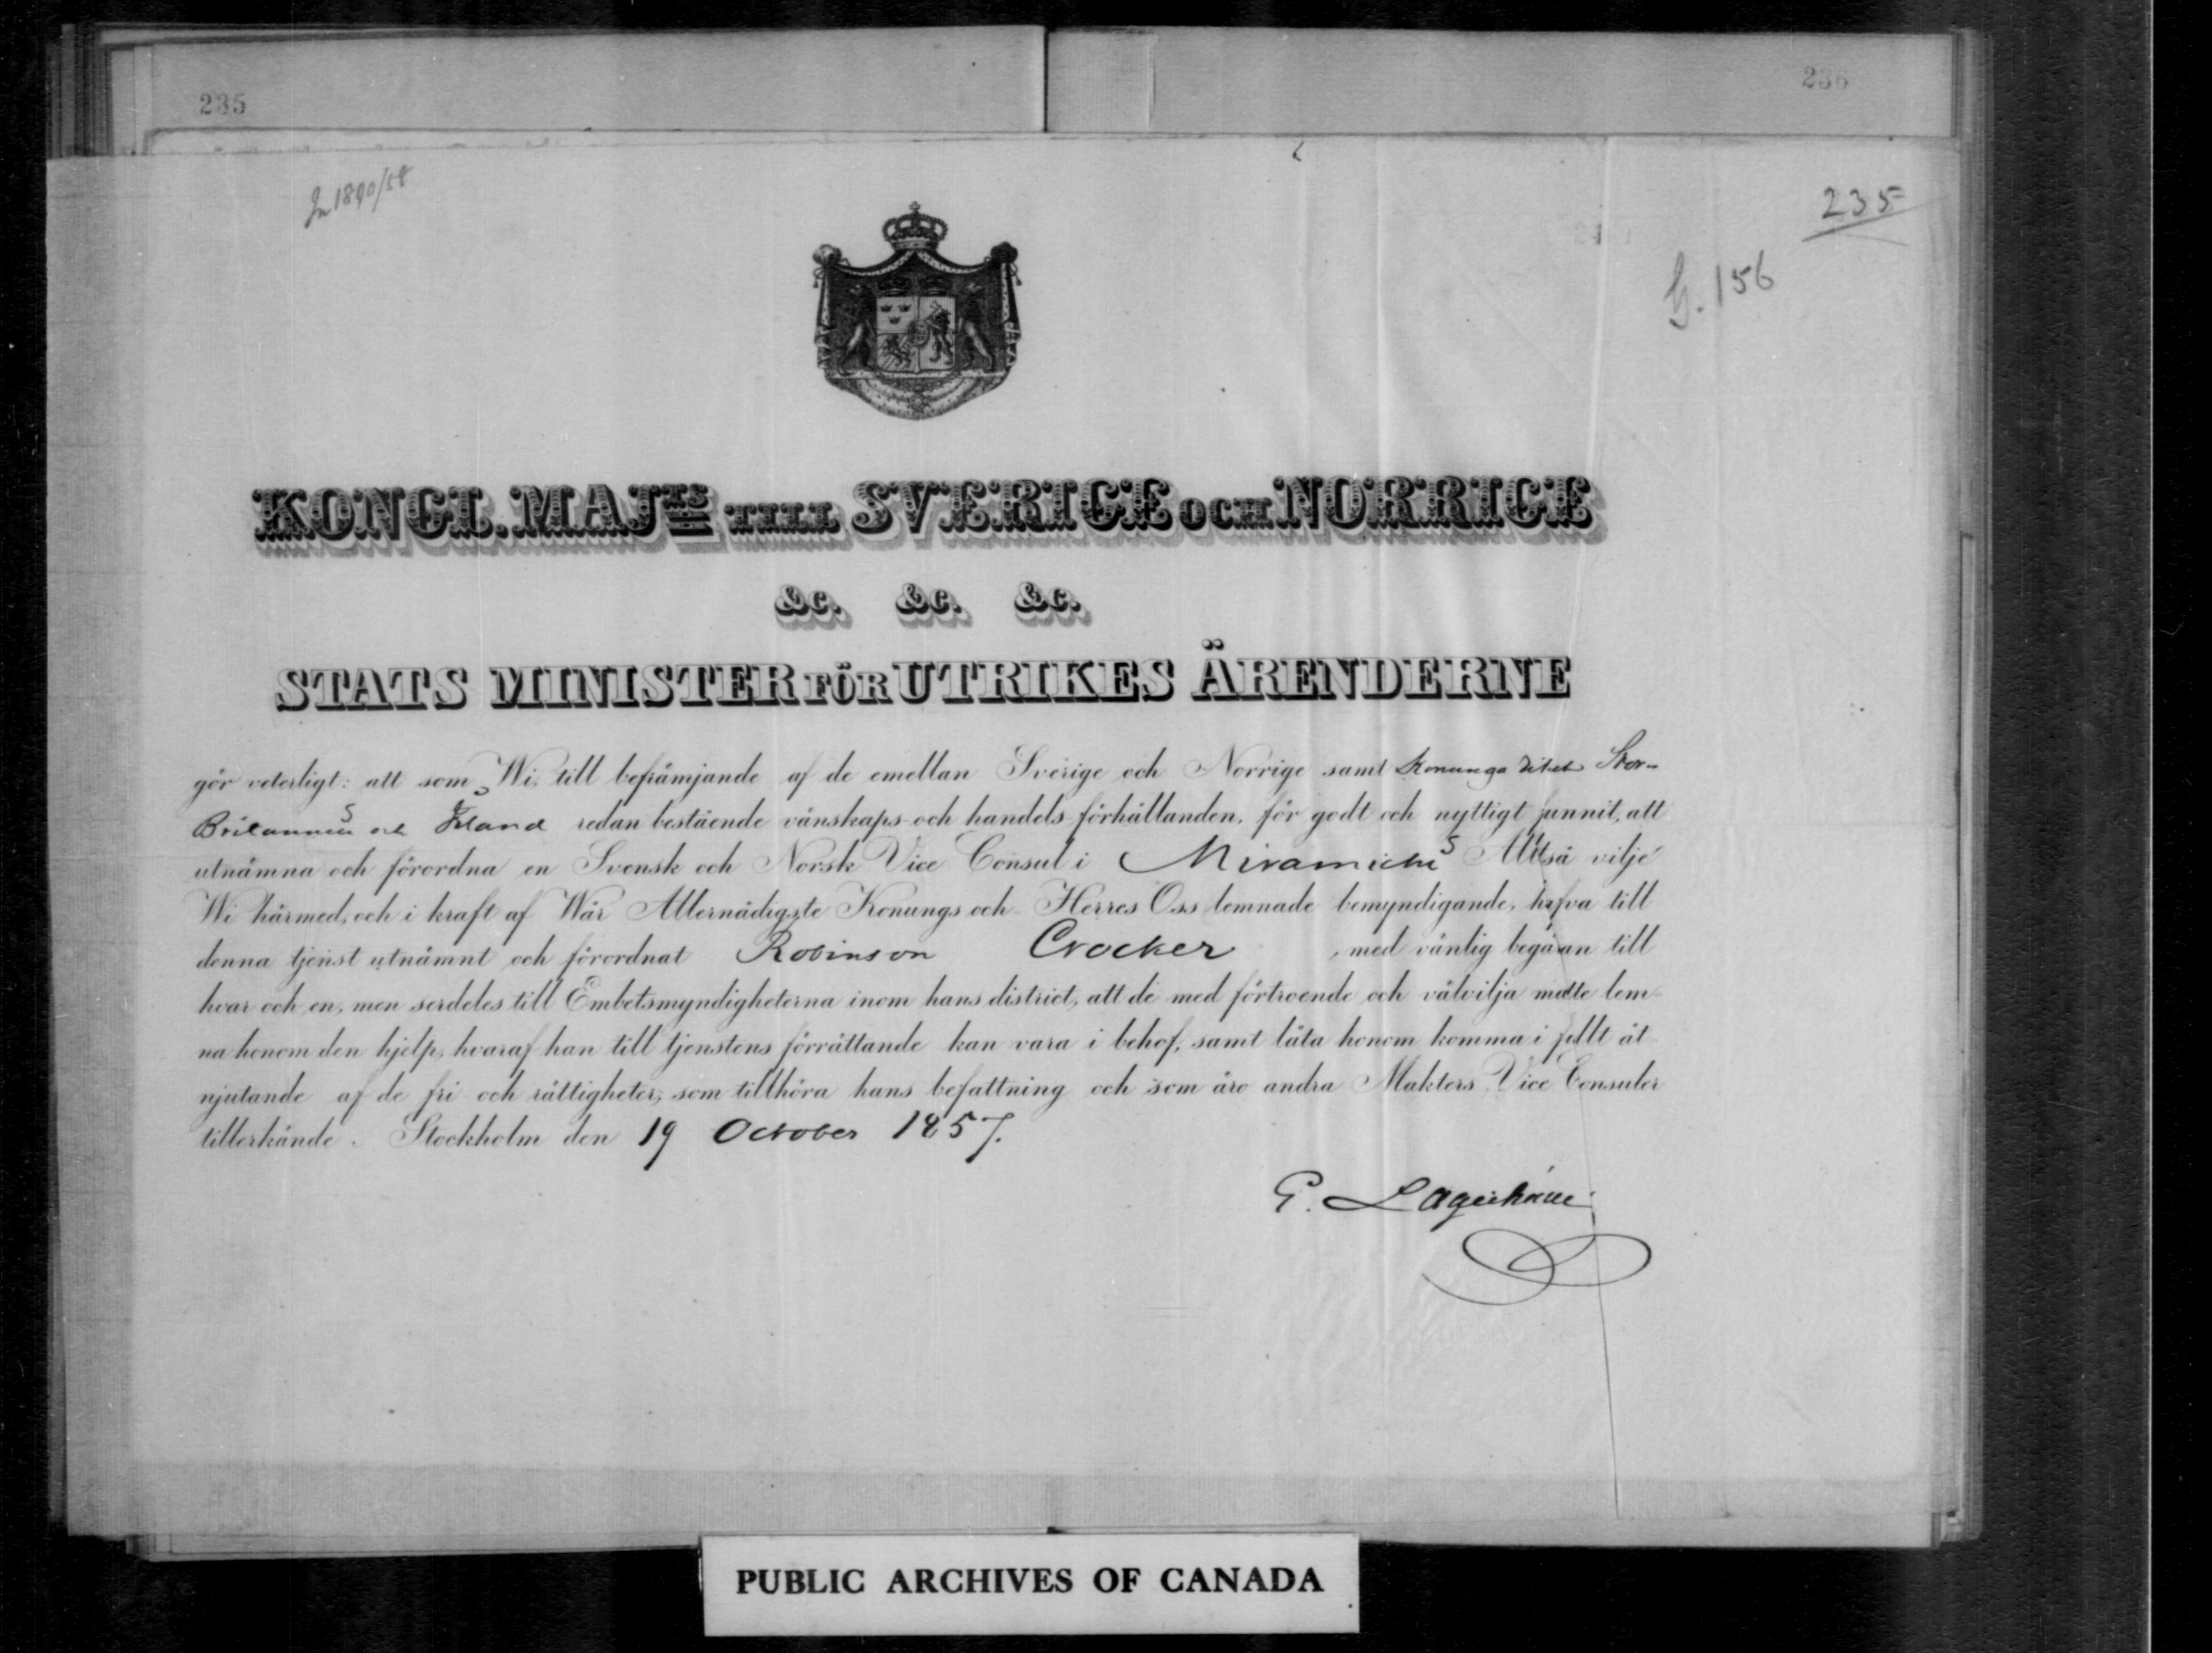 235
236
In 1890/58
235
G. 156
KONGL. MAJTS TILL SVERIGE OCH NORRIGE
&c. &c. &c.
STATS MINISTER FÖR UTRIKES ÄRENDERNE
gör veterligt: att som Wi, till befrämjande af de emellan Sverige och Norrige samt Konunga riket Stor-
Britannien och Irland redan bestående vänskaps- och handels-förhållanden, för godt och nyttigt funnit, att
utnämna och förordna en Svensk och Norsk Vice Consul i Miramichi Alltså vilje
Wi härmed, och i kraft af Wår Allernådigste Konungs och Herres Oss lemnade bemyndigande, hafva till
denna tjenst utnämnt och förordnat Robinson Crocker, med vänlig begäran till
hvar och en, men serdeles till Embetsmyndigheterna inom hans district, att de med förtroende och välvilja måtte lem-
na honom den hjelp, hvaraf han till tjenstens förrättande kan vara i behof, samt låta honom komma i fullt åt-
njutande af de fri- och rättigheter, som tillhöra hans befattning och som äro andra Makters Vice Consuler
tillerkände. Stockholm den 19 October 1857.
G. Lagerheim
PUBLIC ARCHIVES OF CANADA